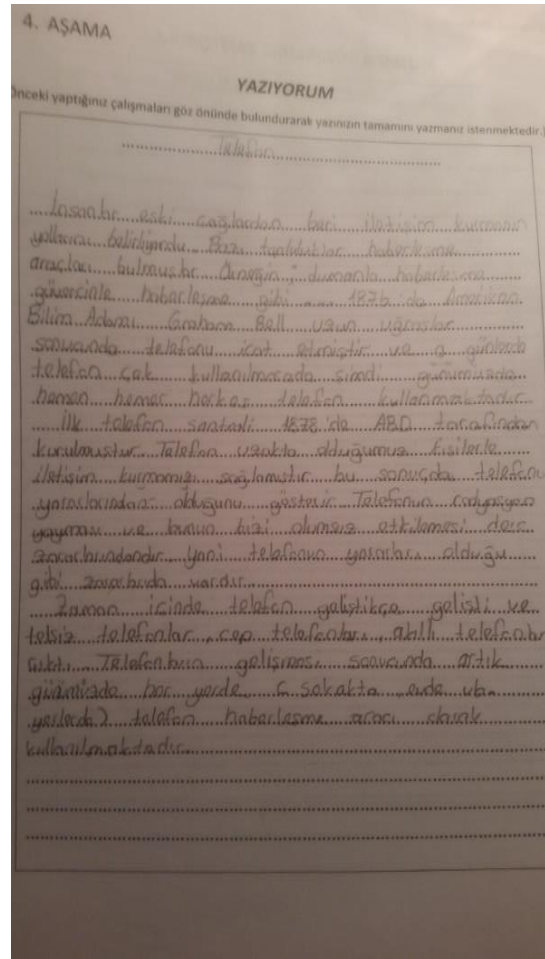 4. AŞAMA
YAZIYORUM
Önceki yaptığınız çalışmaları göz önünde bulundurarak yazınızın tamamını yazmanız istenmektedir.)
Telefon
İnsanlar eski çağlardan beri iletişim kurmanın
yollarını Bazı topluluklar haberleşme
araçları bulmuşlar. Örneğin; dumanla haberleşme
güvercinle haberleşme gibi .... 1876'da Amerikan
Bilim Adamı Graham Bell uzun uğraşlar
sonucunda telefonu icat etmiştir ve o günlerde
telefon çok kullanılmasada şimdi günümüzde
hemen hemen herkes telefon kullanmaktadır.
İlk telefon santrali 1878'de ABD tarafından
kurulmuştur. Telefon uzakta olduğumuz kişilerle
iletişim kurmamızı sağlamıştır bu sonuçda telefonu
yararlarından olduğunu gösterir. Telefonun radyasyon
yayması ve bunun bizi olumsuz etkilemesi
zararlarındandır. Yani telefonun yararları olduğu
gibi zararlarıda vardır.
Zaman içinde telefon geliştikçe gelişti ve
telsiz telefonlar, cep telefonları, akıllı telefonlar
çıktı. Telefonların gelişmesi sonucunda artık
günümüzde her yerde ( sokakta, evde vb.
yerlerde) telefon haberleşme aracı olarak
kullanılmaktadır.